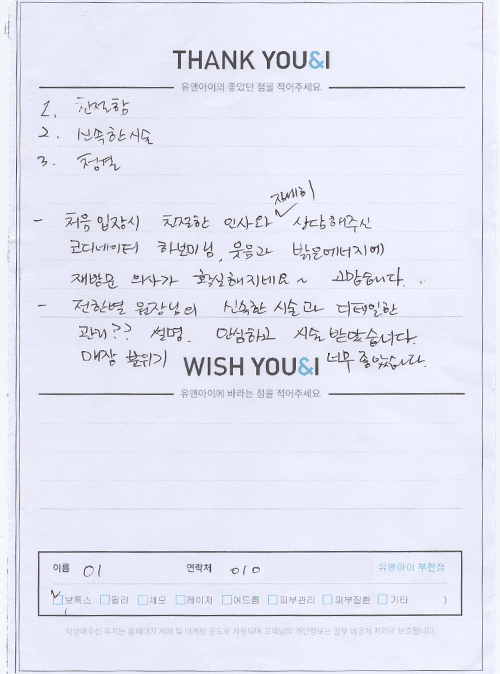 THANK YOU&I
유앤아이의 좋았던 점을 적어주세요
1. 친절함
2. 신속한 시술
3. 청결
자세히
- 처음 입장시 친절한 인사와 상담해주신
코디네이터 하보미님, 웃음과 밝은에너지에
재방문 의사가 확실해지네요~ 고맙습니다.
- 전한별 원장님의 신속한 시술과 디테일한
관리?? 설명. 안심하고 시술 받았습니다.
매장 분위기 너무 좋았습니다.
WISH YOU&I
유앤아이에 바라는 점을 적어주세요
이름 이 연락처 010 유앤아이 부천점
보톡스 필러 제모 레이저 여드름 피부관리 피부질환 기타 )
작성해주신 후기는 홈페이지 게재 및 마케팅 용도로 사용되며 고객님의 개인정보는 일부 비공개 처리로 보호됩니다.